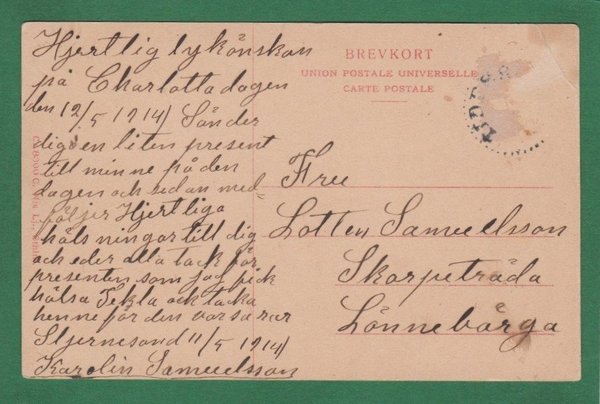 Hjertlig lykönskan
på Charlotta dagen
den 12/5 1914 Sänder
dig en liten present
till minne på den
dagen och sedan med
följer Hjertliga
hälsningar till dig
och eder alla tack för
presenten som jag fick
hälsa Tekla och tacka
henne för den
Stjernesand 11/5 1914
Karolin Samuelsson
BREVKORT
UNION POSTALE UNIVERSELLE
CARTE POSTALE
Fru
Lotten Samuelsson
Skarpetråda
Lönnebärga